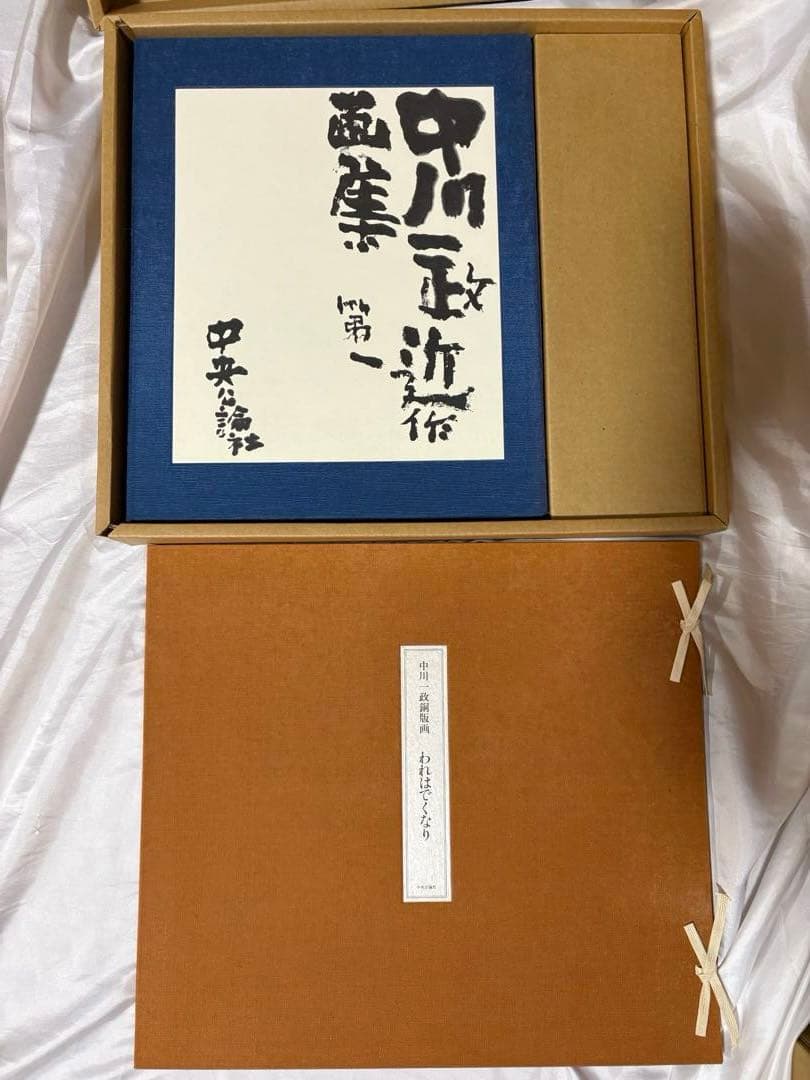 中川一政近作
画集
第一
中央公論社
中川一政銅版画　われはでくなり
中央公論社